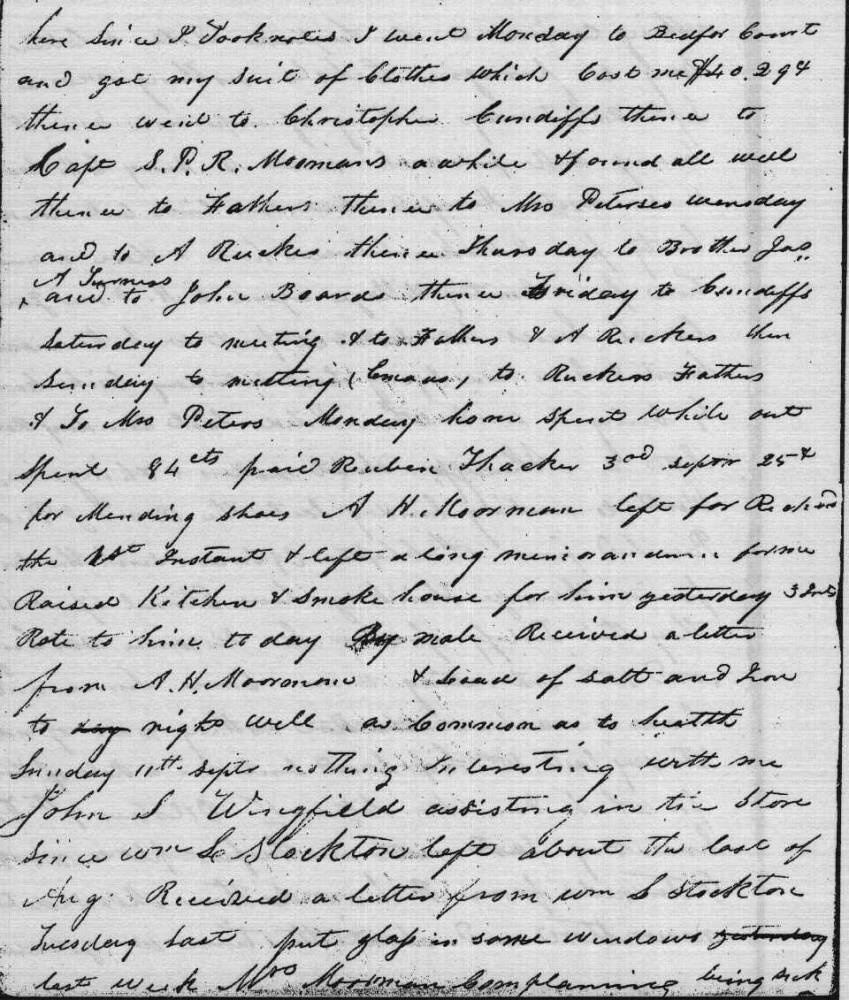 here Since I Took notes I went Monday to Bedfor Court
and got my Suit of Clothes which Cost me $40.29 4
thence went to Christopher Cundiffs thence to
Capt S. P. R. Moormans awhile & found all well
thence to Fathers thence to Mrs Peterses wensday
and to A Ruckes thence Thursday to Brother Jas
A Turners
and to John Boards thence Friday to Cundiffs
Saturday to meeting & to Fathers & A Ruckers then
Sunday to meeting (Emaus) to Ruckers Fathers
& To Mrs Peters Monday home Spent while out
Spent 84 cts paid Ruben Thacker 3rd Septr 25 c
for Mending Shoes A H. Moorman left for Richmd
the 1st Instant & left a long memorandum for me
Raised Kitchen & Smoke house for him yesterday 3 Inst
Rote to him to day By male Received a letter
from A. H. Moorman & Load of Salt and Iron
to day night well as Common as to health
Sunday 11th Septr nothing Interesting with me
John S Wingfield assisting in the Store
Since Wm L Stockton left about the last of
Aug. Received a letter from Wm L Stockton
Tuesday last put glass in some windows yesterday
last week Mrs Moorman Complaining being sick